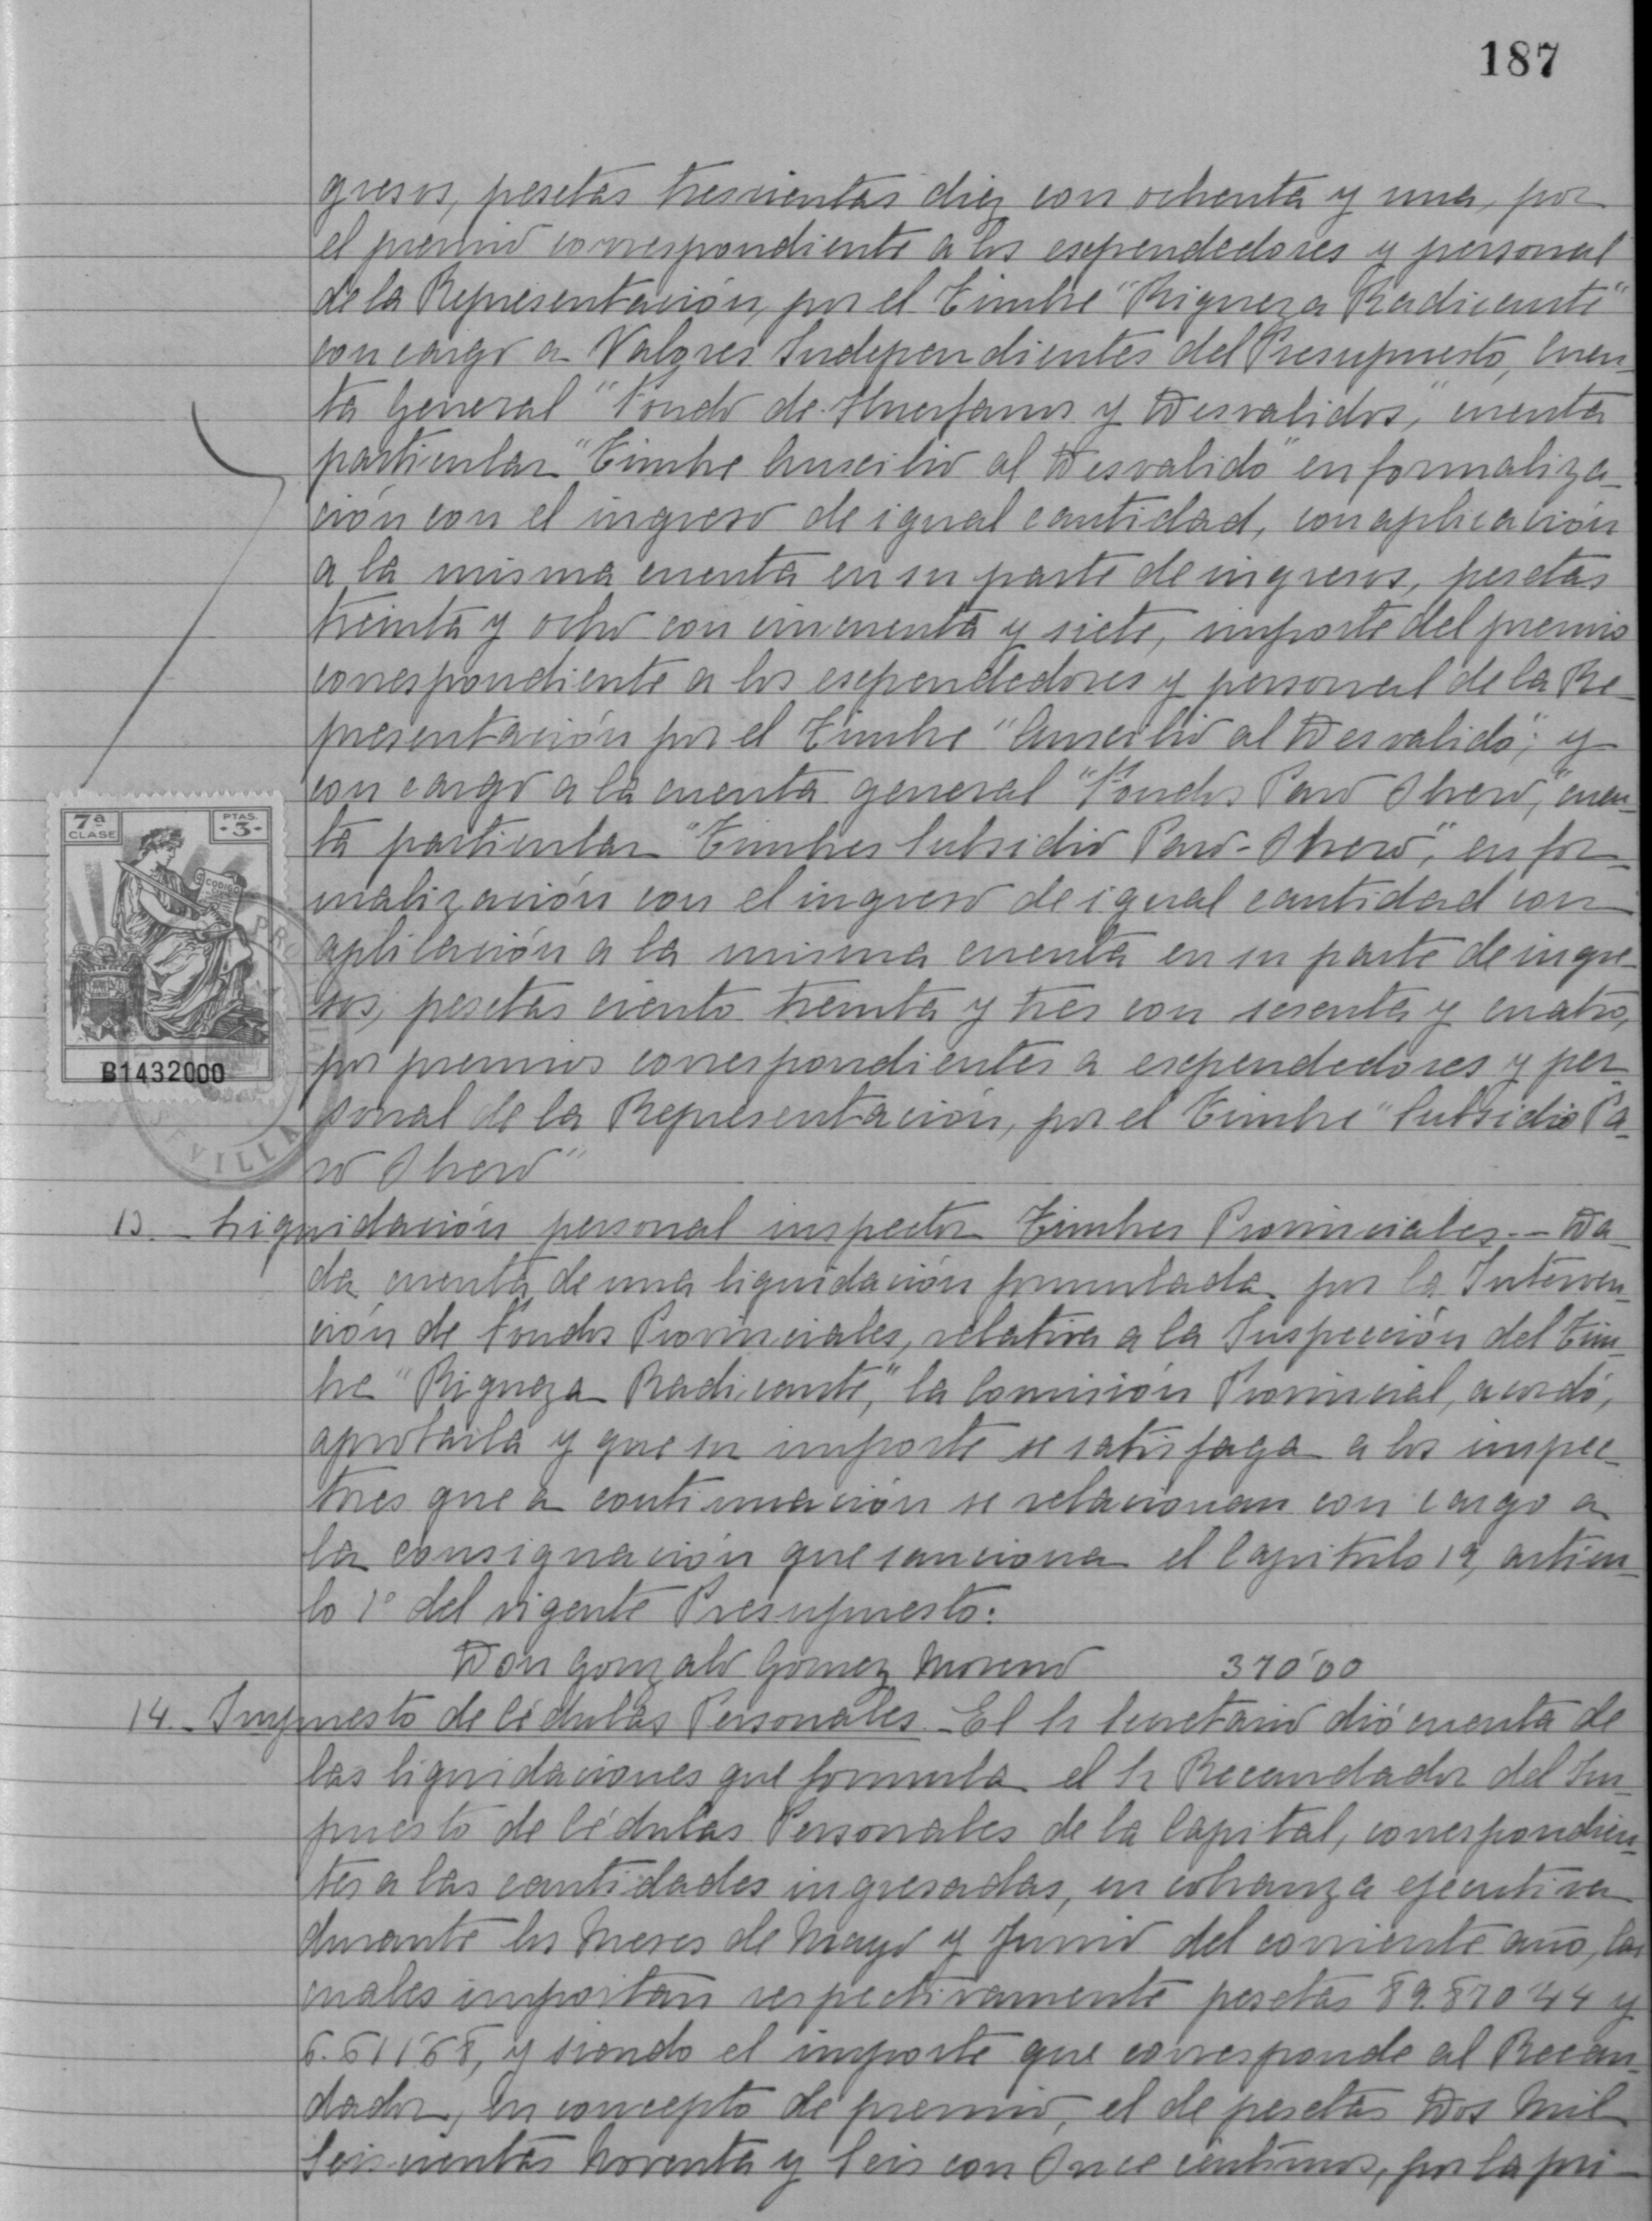 187
gresos, pesetas trescientas diez con ochenta y una, por
el premio correspondiente a los expendedores y personal
de la Representación, por el Timbre "Riqueza Radicante"
con cargo a Valores Independientes del Presupuesto, cuen-
ta General "Fondo de Huerfanos y Desvalidos," cuenta
particular "Timbre Auxilio al Desvalido" en formaliza-
ción con el ingreso de igual cantidad, con aplicación
a la misma cuenta en su parte de ingresos, pesetas
treinta y ocho con cincuenta y siete, importe del premio
correspondiente a los expendedores y personal de la Re-
presentación por el Timbre "Auxilio al Desvalido"; y
con cargo a la cuenta general "Fondos Paro Obrero," cuen-
ta particular "Timbres Subsidio Paro-Obrero", en for-
malización con el ingreso de igual cantidad con
aplicación a la misma cuenta en su parte de ingre-
sos, pesetas ciento treinta y tres con sesenta y cuatro,
por premios correspondientes a expendedores y per-
sonal de la Representación, por el Timbre "Subsidio Pa-
ro Obrero"
7ª CLASE
PTAS. -3-
CODIGO
B1432000
SEVILLA
13.- Liquidación personal inspector Timbres Provinciales.- Da-
da cuenta de una liquidación formulada por la Interven-
ción de Fondos Provinciales, relativa a la Inspección del Tim-
bre "Riqueza Radicante," la Comisión Provincial, acordó,
aprobarla y que su importe se satisfaga a los inspec-
tores que a continuación se relacionan con cargo a
la consignación que sanciona el Capitulo 19, artícu-
lo 1º del vigente Presupuesto:
Don Gonzalo Gómez Moreno 370'00
14.- Impuesto de Cédulas Personales.- El Sr Secretario dió cuenta de
las liquidaciones que formula el Sr Recaudador del Im-
puesto de Cédulas Personales de la Capital, correspondien-
tes a las cantidades ingresadas, en cobranza ejecutiva
durante los Meses de Mayo y Junio del corriente año, las
cuales importan respectivamente pesetas 89.870'44 y
6.611'68, y siendo el importe que corresponde al Recau-
dador, en concepto de premio, el de pesetas Dos Mil
Seiscientas Noventa y Seis con Once centimos, por la pri-